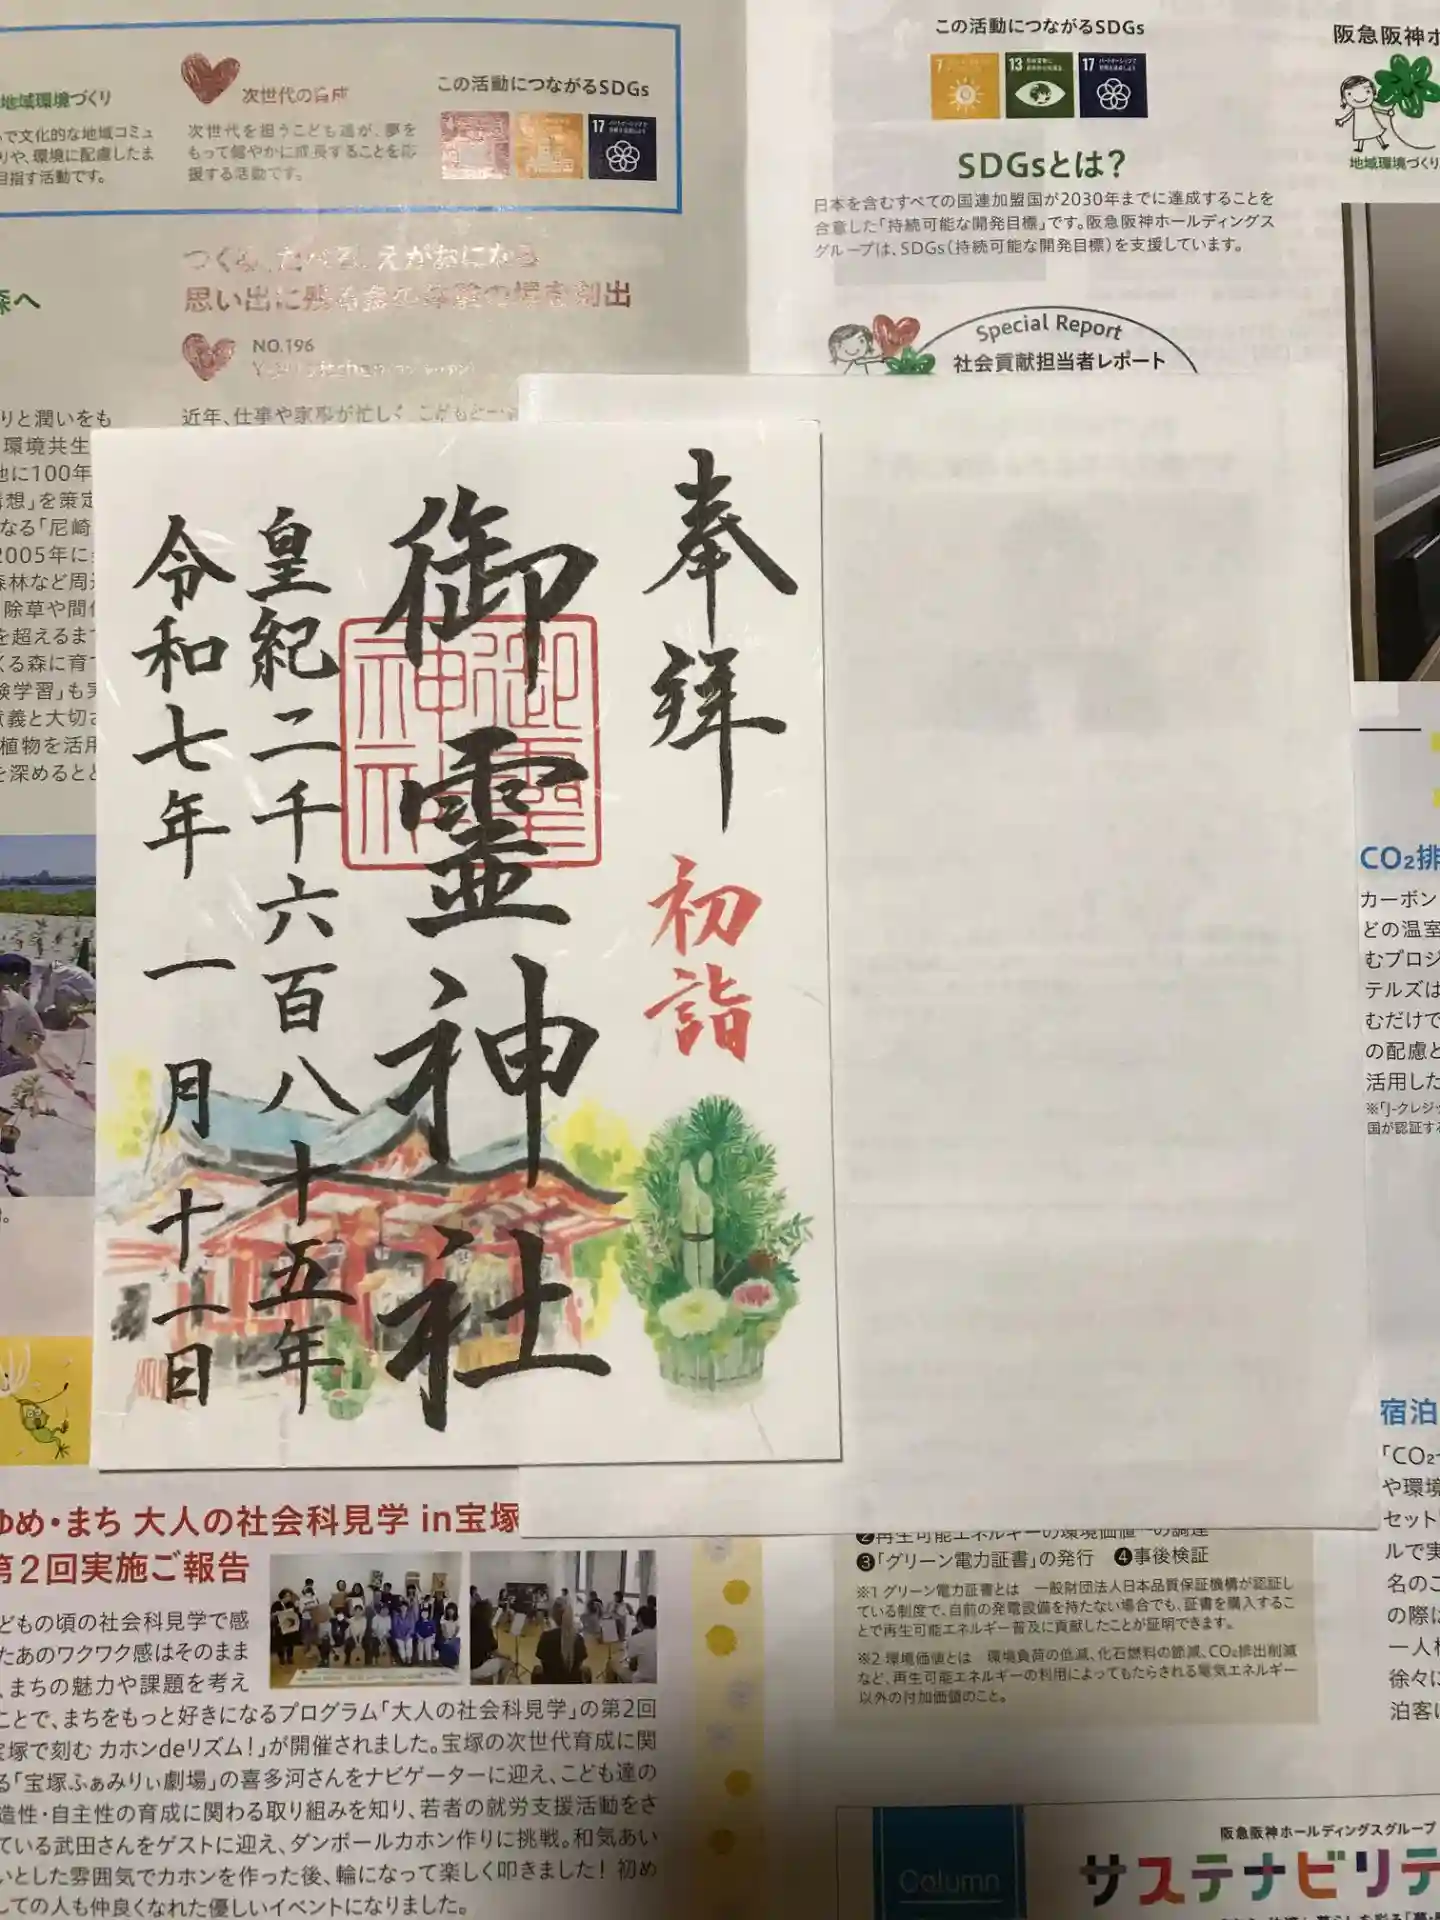 地域環境づくり
で文化的な地域コミュ
りや、環境に配慮したま
目指す活動です。
次世代の育成
次世代を担うこども達が、夢を
もって健やかに成長することを応
援する活動です。
この活動につながるSDGs
17
森へ
つくる、たべる、えがおになる
思い出に残る
の場を創出
NO.196
近年、仕事や家事が忙しく、こどもと一
りと潤いをも
環境共生
地に100年
構想」を策定
なる「尼崎
2005年に
森林など周
除草や間
を超えるま
くる森に育
験学習」も実
意義と大切さ
植物を活用
を深めると
この活動につながるSDGs
7
13
17
SDGsとは？
日本を含むすべての国連加盟国が2030年までに達成することを
合意した「持続可能な開発目標」です。阪急阪神ホールディングス
グループは、SDGs（持続可能な開発目標）を支援しています。
Special Report
社会貢献担当者レポート
阪急阪神ホ
地域環境づくり
奉拝
初詣
御霊神社
御霊神社
皇紀二千六百八十五年
令和七年一月十一日
CO₂排
カーボン
どの温室
むプロジ
テルズは
むだけで
の配慮と
活用した
※「J-クレジッ
国が認証する
宿泊
「CO₂ゼ
や環境
セット
ルで実
名のご
の際に
一人様
徐々に
泊客に
ゆめ・まち 大人の社会科見学 in宝塚
第2回実施ご報告
どもの頃の社会科見学で感
たあのワクワク感はそのまま
、まちの魅力や課題を考え
ことで、まちをもっと好きになるプログラム「大人の社会科見学」の第2回
宝塚で刻む カホンdeリズム！」が開催されました。宝塚の次世代育成に関
る「宝塚ふぁみりぃ劇場」の喜多河さんをナビゲーターに迎え、こども達の
造性・自主性の育成に関わる取り組みを知り、若者の就労支援活動をさ
ている武田さんをゲストに迎え、ダンボールカホン作りに挑戦。和気あい
いとした雰囲気でカホンを作った後、輪になって楽しく叩きました！ 初め
しての人も仲良くなれた優しいイベントになりました。
❷再生可能エネルギーの環境価値※2の調達
❸「グリーン電力証書」の発行 ❹事後検証
※1 グリーン電力証書とは 一般財団法人日本品質保証機構が認証し
ている制度で、自前の発電設備を持たない場合でも、証書を購入するこ
とで再生可能エネルギー普及に貢献したことが証明できます。
※2 環境価値とは 環境負荷の低減、化石燃料の節減、CO₂排出削減
など、再生可能エネルギーの利用によってもたらされる電気エネルギー
以外の付加価値のこと。
Column
阪急阪神ホールディングスグループ
サステナビリテ